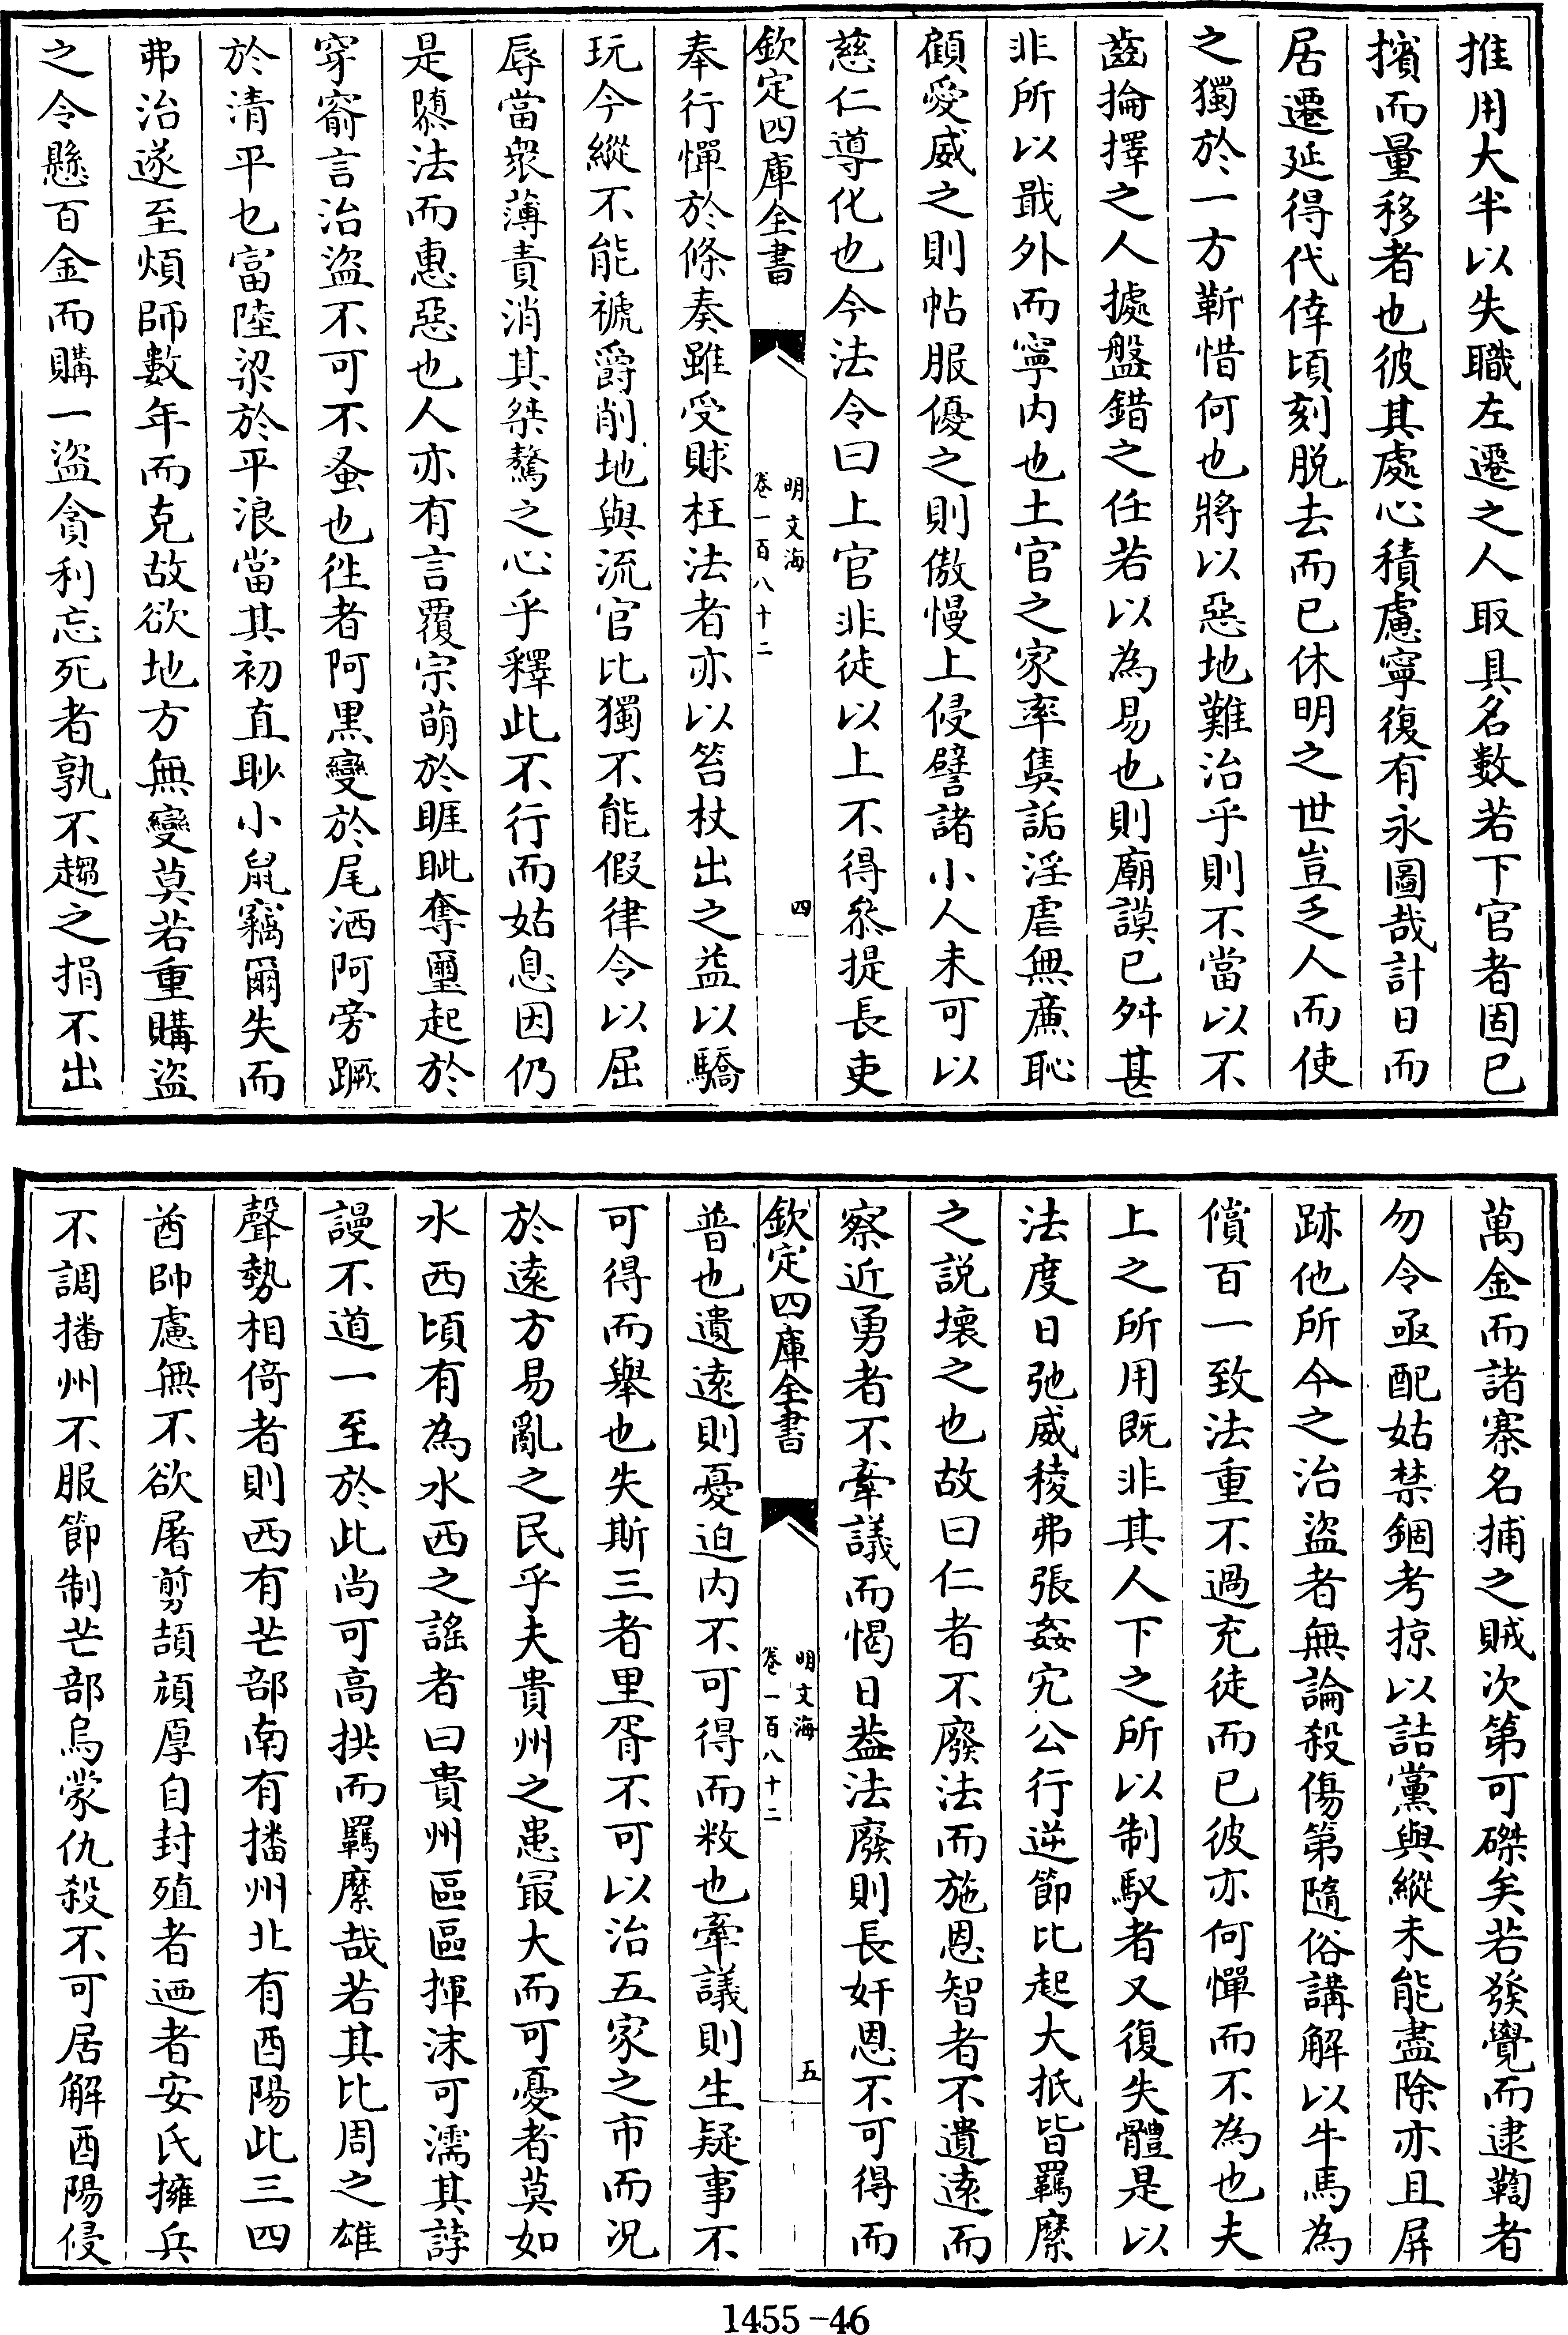 推用大半以失職左遷之人取具名數若下官者固已
擯而量移者也彼其處心積慮寧復有永圖哉計日而
居遷延得代倖頃刻脱去而已休明之世豈乏人而使
之獨於一方靳惜何也將以惡地難治乎則不當以不
齒掄擇之人據盤錯之任若以為易也則廟謨已舛甚
非所以戢外而寧内也土官之家率㒵詬淫虐無亷恥
顧愛威之則帖服優之則傲慢上侵譬諸小人未可以
慈仁導化也今法令曰上官非徒以上不得叅提長吏
欽定四庫全書
明文海
卷一百八十二
四
奉行憚於條奏雖受賕枉法者亦以笞杖出之益以驕
玩今縱不能禠爵削地與流官比獨不能假律令以屈
辱當衆薄責消其桀驁之心乎釋此不行而姑息因仍
是隳法而惠惡也人亦有言覆宗萌於睚眦奪璽起於
穿窬言治盜不可不蚤也徃者阿黒變於尾洒阿旁蹶
於清平乜富陸梁於平浪當其初直眇小鼠竊爾失而
弗治遂至煩師數年而克故欲地方無變莫若重購盜
之令懸百金而購一盜貪利忘死者孰不趨之捐不出
萬金而諸寨名捕之賊次第可磔矣若發覺而逮鞫者
勿令亟配姑禁錮考掠以詰黨與縱未能盡除亦且屏
跡他所今之治盜者無論殺傷第隨俗講解以牛馬為
償百一致法重不過充徒而已彼亦何憚而不為也夫
上之所用既非其人下之所以制馭者又復失體是以
法度日弛威稜弗張姦宄公行逆節比起大抵皆羈縻
之説壞之也故曰仁者不廢法而施恩智者不遺遠而
察近勇者不牽議而愒日葢法廢則長奸恩不可得而
欽定四庫全書
明文海
卷一百八十二
五
普也遺逺則憂迫内不可得而救也牽議則生疑事不
可得而舉也失斯三者里胥不可以治五家之市而况
於逺方易亂之民乎夫貴州之患冣大而可憂者莫如
水西頃有為水西之謡者曰貴州區區揮沫可濡其誖
謾不道一至於此尚可高拱而羈縻哉若其比周之雄
聲勢相倚者則西有芒部南有播州北有酉陽此三四
酋帥慮無不欲屠剪頡頏厚自封殖者迺者安氏擁兵
不調播州不服節制芒部烏蒙仇殺不可居解酉陽侵
1455-46